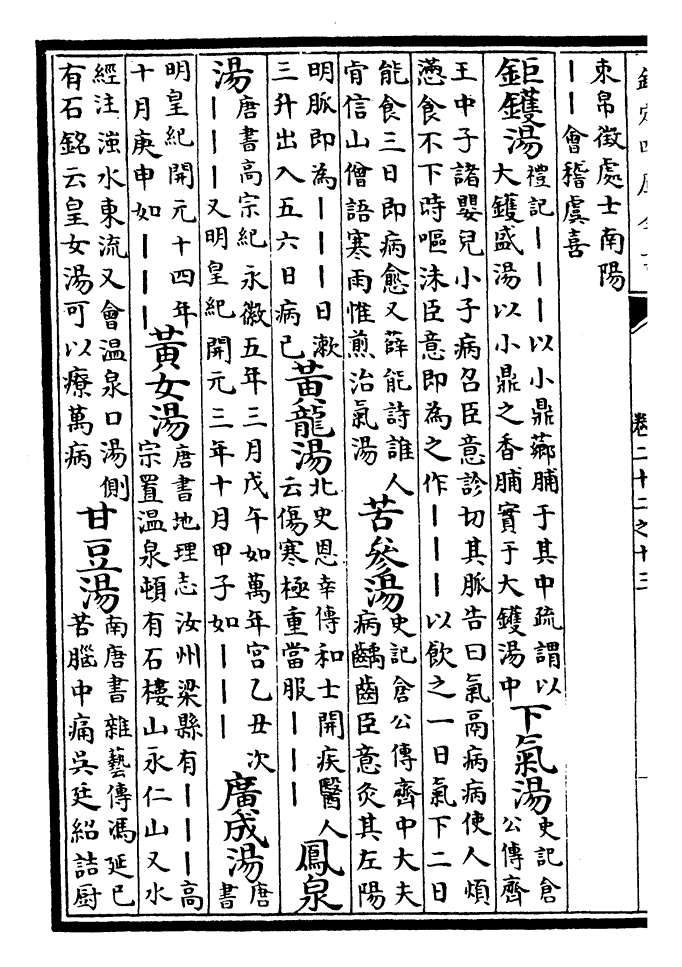 欽定四庫全書
卷二十二之十三
束帛徵處士南陽
丨丨會稽虞喜
鉅鑊湯
禮記丨丨丨以小鼎薌脯于其中疏謂以
大鑊盛湯以小鼎之香脯實于大鑊湯中
下氣湯
史記倉
公傳齊
王中子諸嬰兒小子病召臣意診切其脈告曰氣鬲病病使人煩
懣食不下時嘔沫臣意即為之作丨丨丨以飲之一日氣下二日
能食三日即病愈又薛能詩誰人
肯信山僧語寒雨惟煎治氣湯
苦參湯
史記倉公傳齊中大夫
病齲齒臣意灸其左陽
明脈即為丨丨丨日漱
三升出入五六日病已
黃龍湯
北史恩幸傳和士開疾醫人
云傷寒極重當服丨丨丨
鳳泉
湯
唐書高宗紀永徽五年三月戊午如萬年宮乙丑次
丨丨丨又明皇紀開元三年十月甲子如丨丨丨
廣成湯
唐
書
明皇紀開元十四年
十月庚申如丨丨丨
黃女湯
唐書地理志汝州梁縣有丨丨丨高
宗置温泉頓有石樓山永仁山又水
經注滍水東流又會温泉口湯側
有石銘云皇女湯可以療萬病
甘豆湯
南唐書雜藝傳馮延已
苦腦中痛吳廷紹詰厨